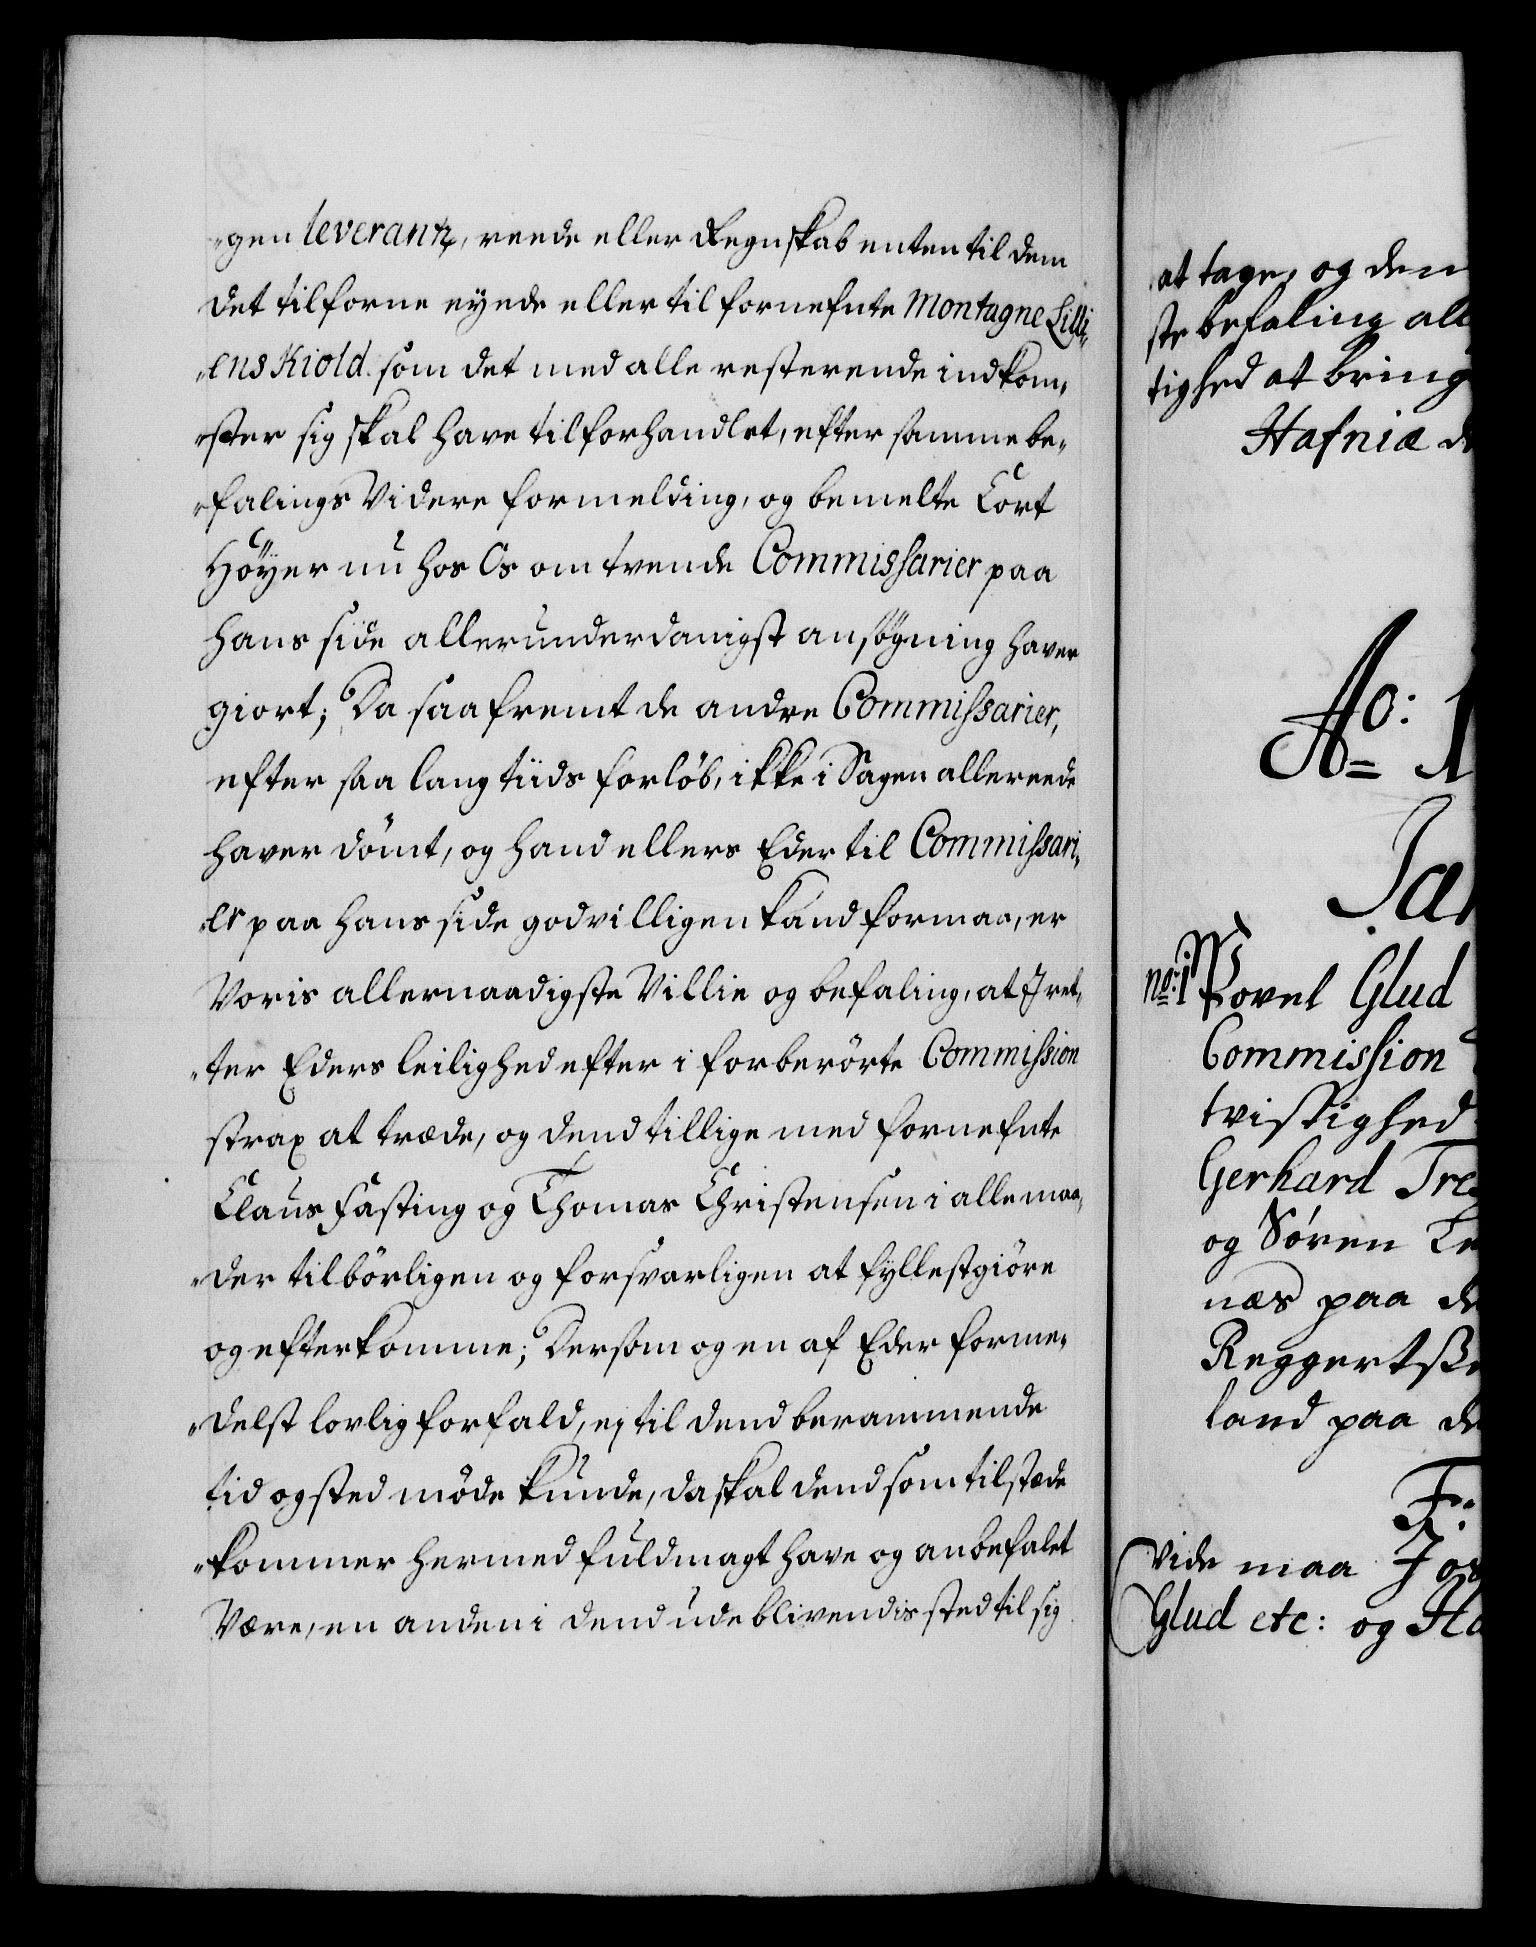 "gen leverantz, reede eller Regnskab enten til dem
det tilforne eyede eller til fornefnte Montagne Lilli„
„enskiold som det med alle resterende indkom„
„ster sig skal have tilforhandlet, efter samme be„
„falings Videre formelding, og bemelte Cort
Höyer nu hos Os om tvende Commissarier paa
hans side allerunderdanigst ansögning haver
giort; Da saafremt de andre Commissarier,
efter saa lang tiids forlöb, ikke i Sagen allereede
haver dömt, og hand ellers Eder til Commissari„
„er paa hans side godvilligen kand formaa, er
Voris allernaadigste Villie og befaling, at I ret„
„ter Eders leilighed efter i forberörte Commission
strax at træde, og dend tillige med fornefnte
Claus Fasting og Thomas Christensen i alle maa„
„der tilbörligen og forsvarligen at fyllestgiöre
og efterkomme; Dersom og en af Eder forme„
„delst lovlig forfald, ej til dend berammende
tid og sted möde kunde, da skal dend som tilstæde
„kommer hermed fuldmagt have og anbefalet
Være, en anden i dend udeblivendis sted til sig
at tage, og den
ste befaling all
tighed at bring
Hafniæ d
Ao: 1
Jan
no: 1 Povel Glud
Commission
tvistighed
Gerhard Tre
og Sören Te
næs paa de
Reggertsße
land paa de
F:
Vide maa Jo
Glud etc: og Ha